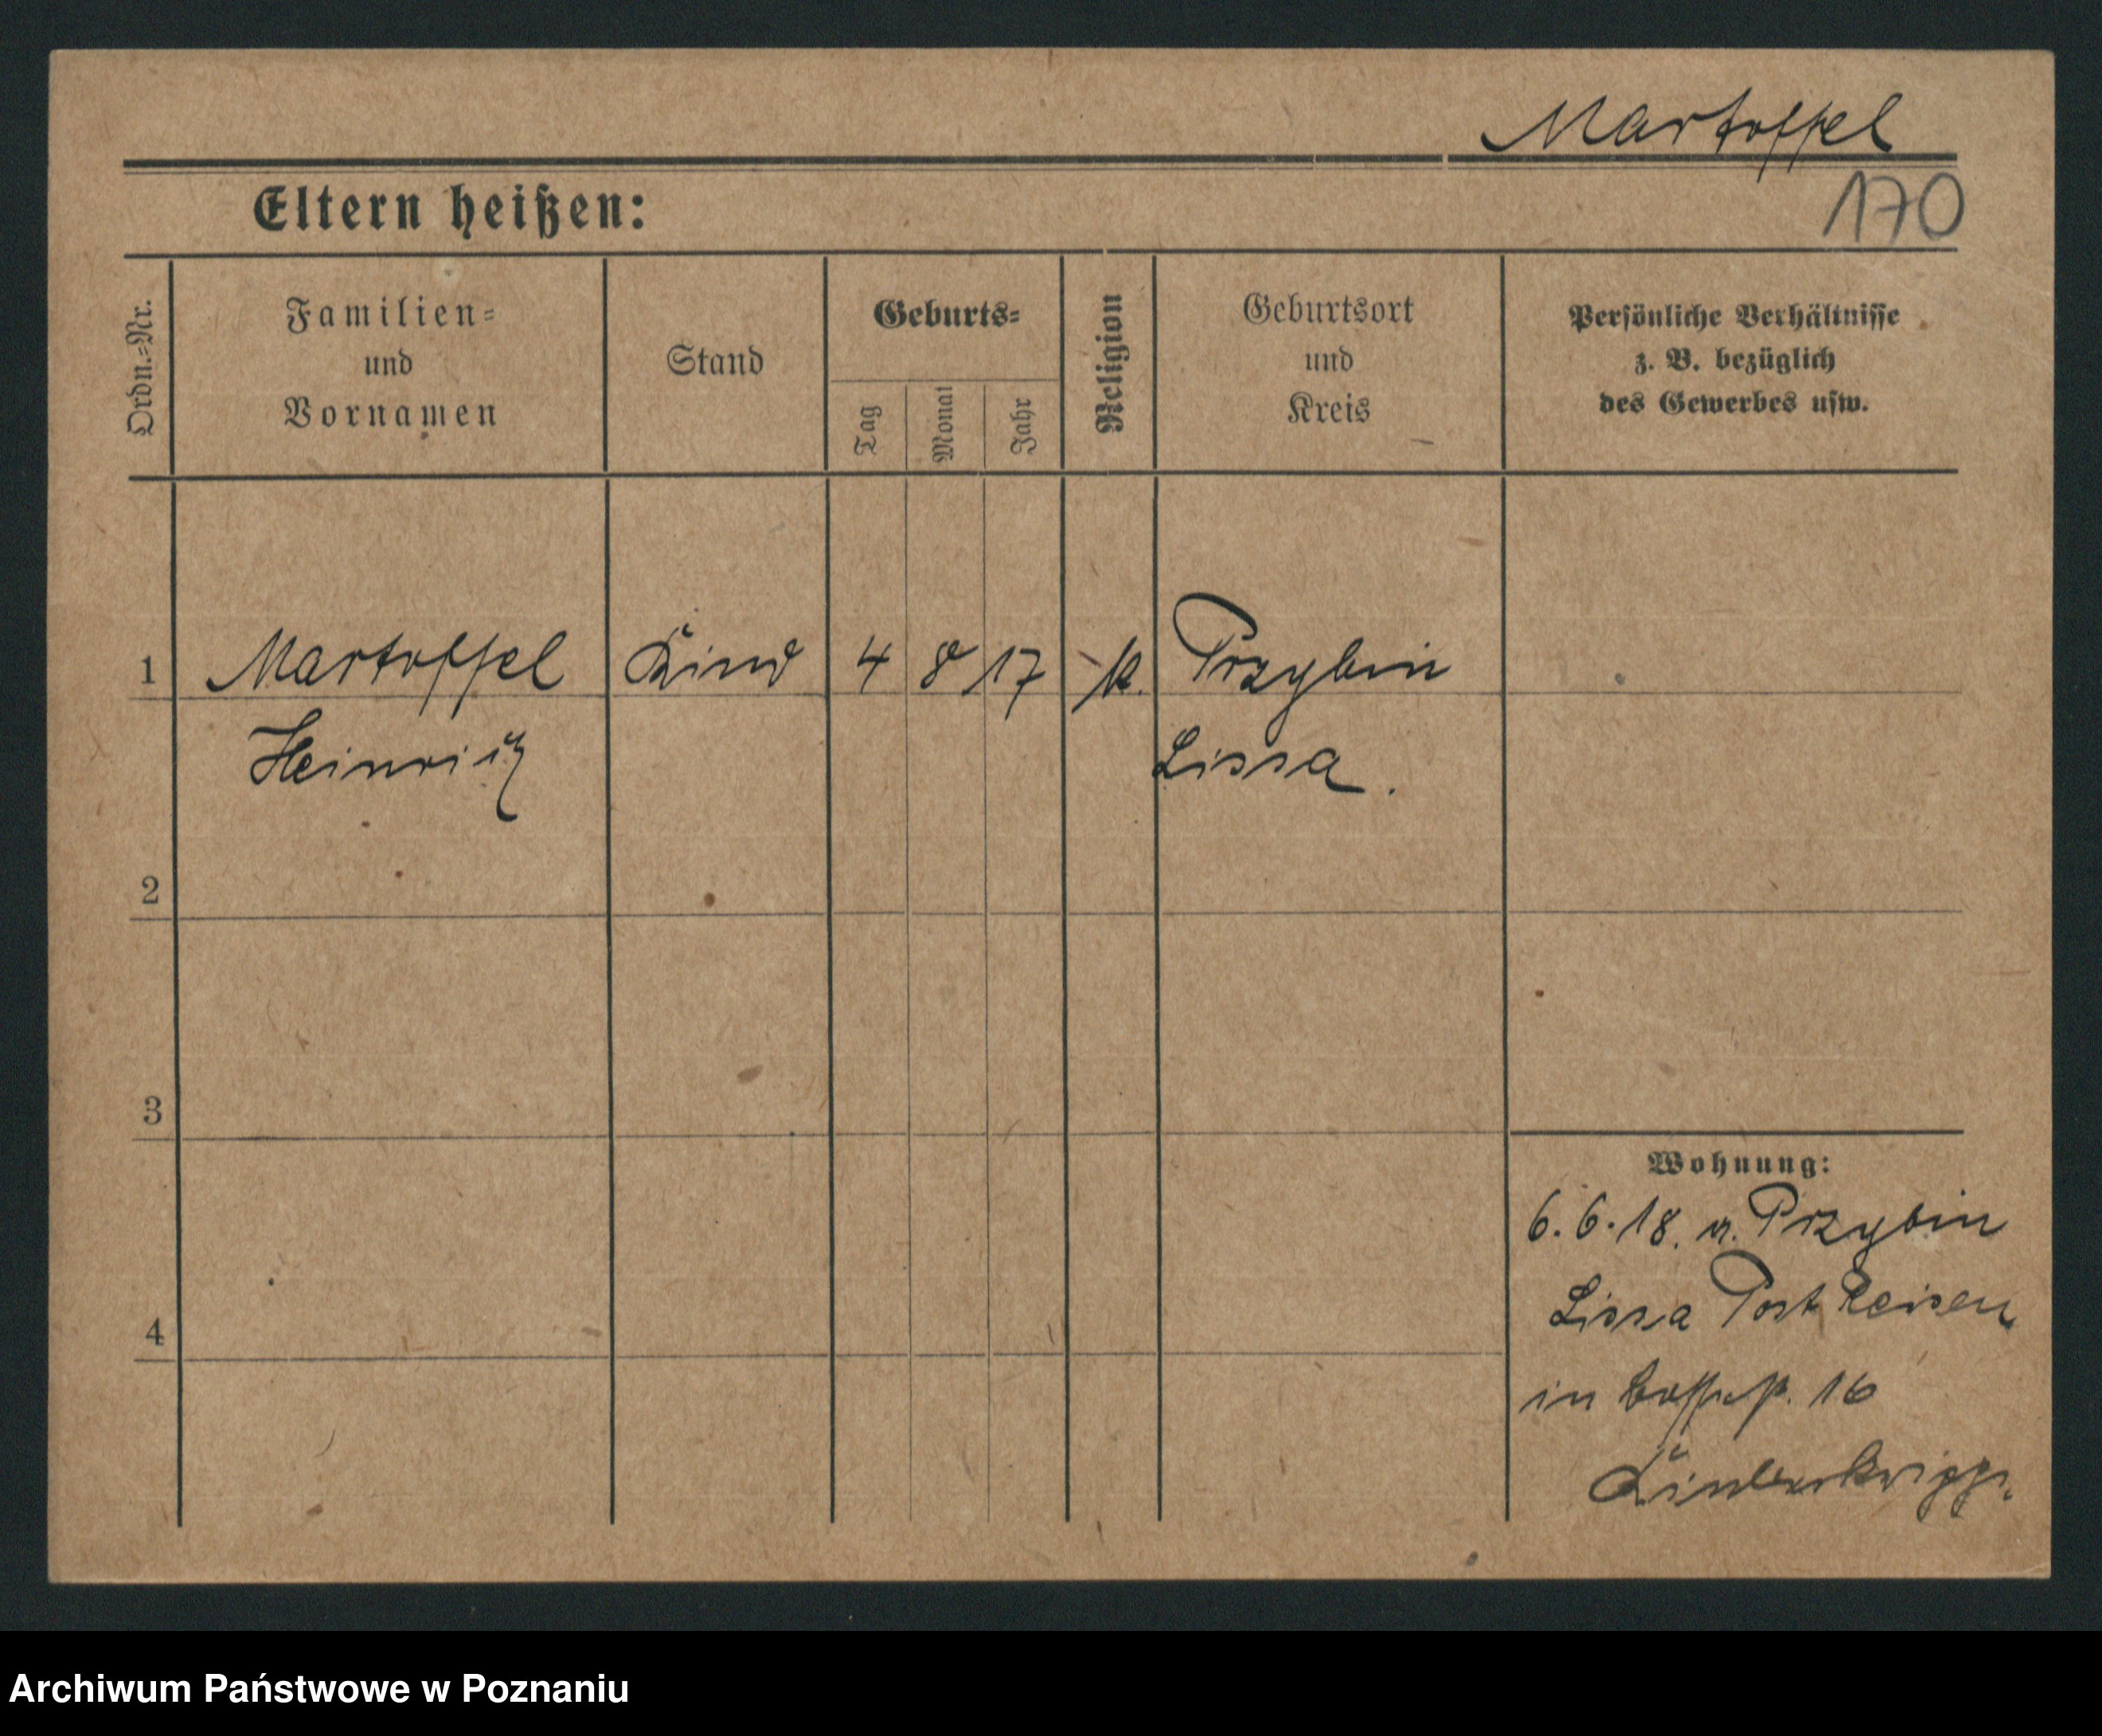 Martoffel
170
Eltern heißen:
Ordn.-Nr.
Familien-
und
Vornamen
Stand
Geburts-
Tag
Monat
Jahr
Religion
Geburtsort
und
Kreis
Persönliche Verhältnisse
z. B. bezüglich
des Gewerbes usw.
1 Martoffel Kind 4 8 17 k. Przybin
Heinrich Lissa.
2
3
4
Wohnung:
6.6.18. n. Przybin
Lissa Post Reisen
in 16
Archiwum Państwowe w Poznaniu